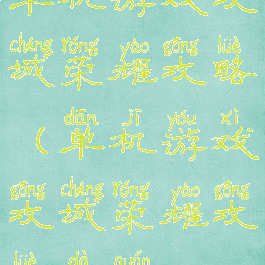 单机游戏攻
chéng róng yào gōng lüè
城荣耀攻略
dān jī yóu xì
（单机游戏
gōng chéng róng yào gōng
攻城荣耀攻
lüè dà quán